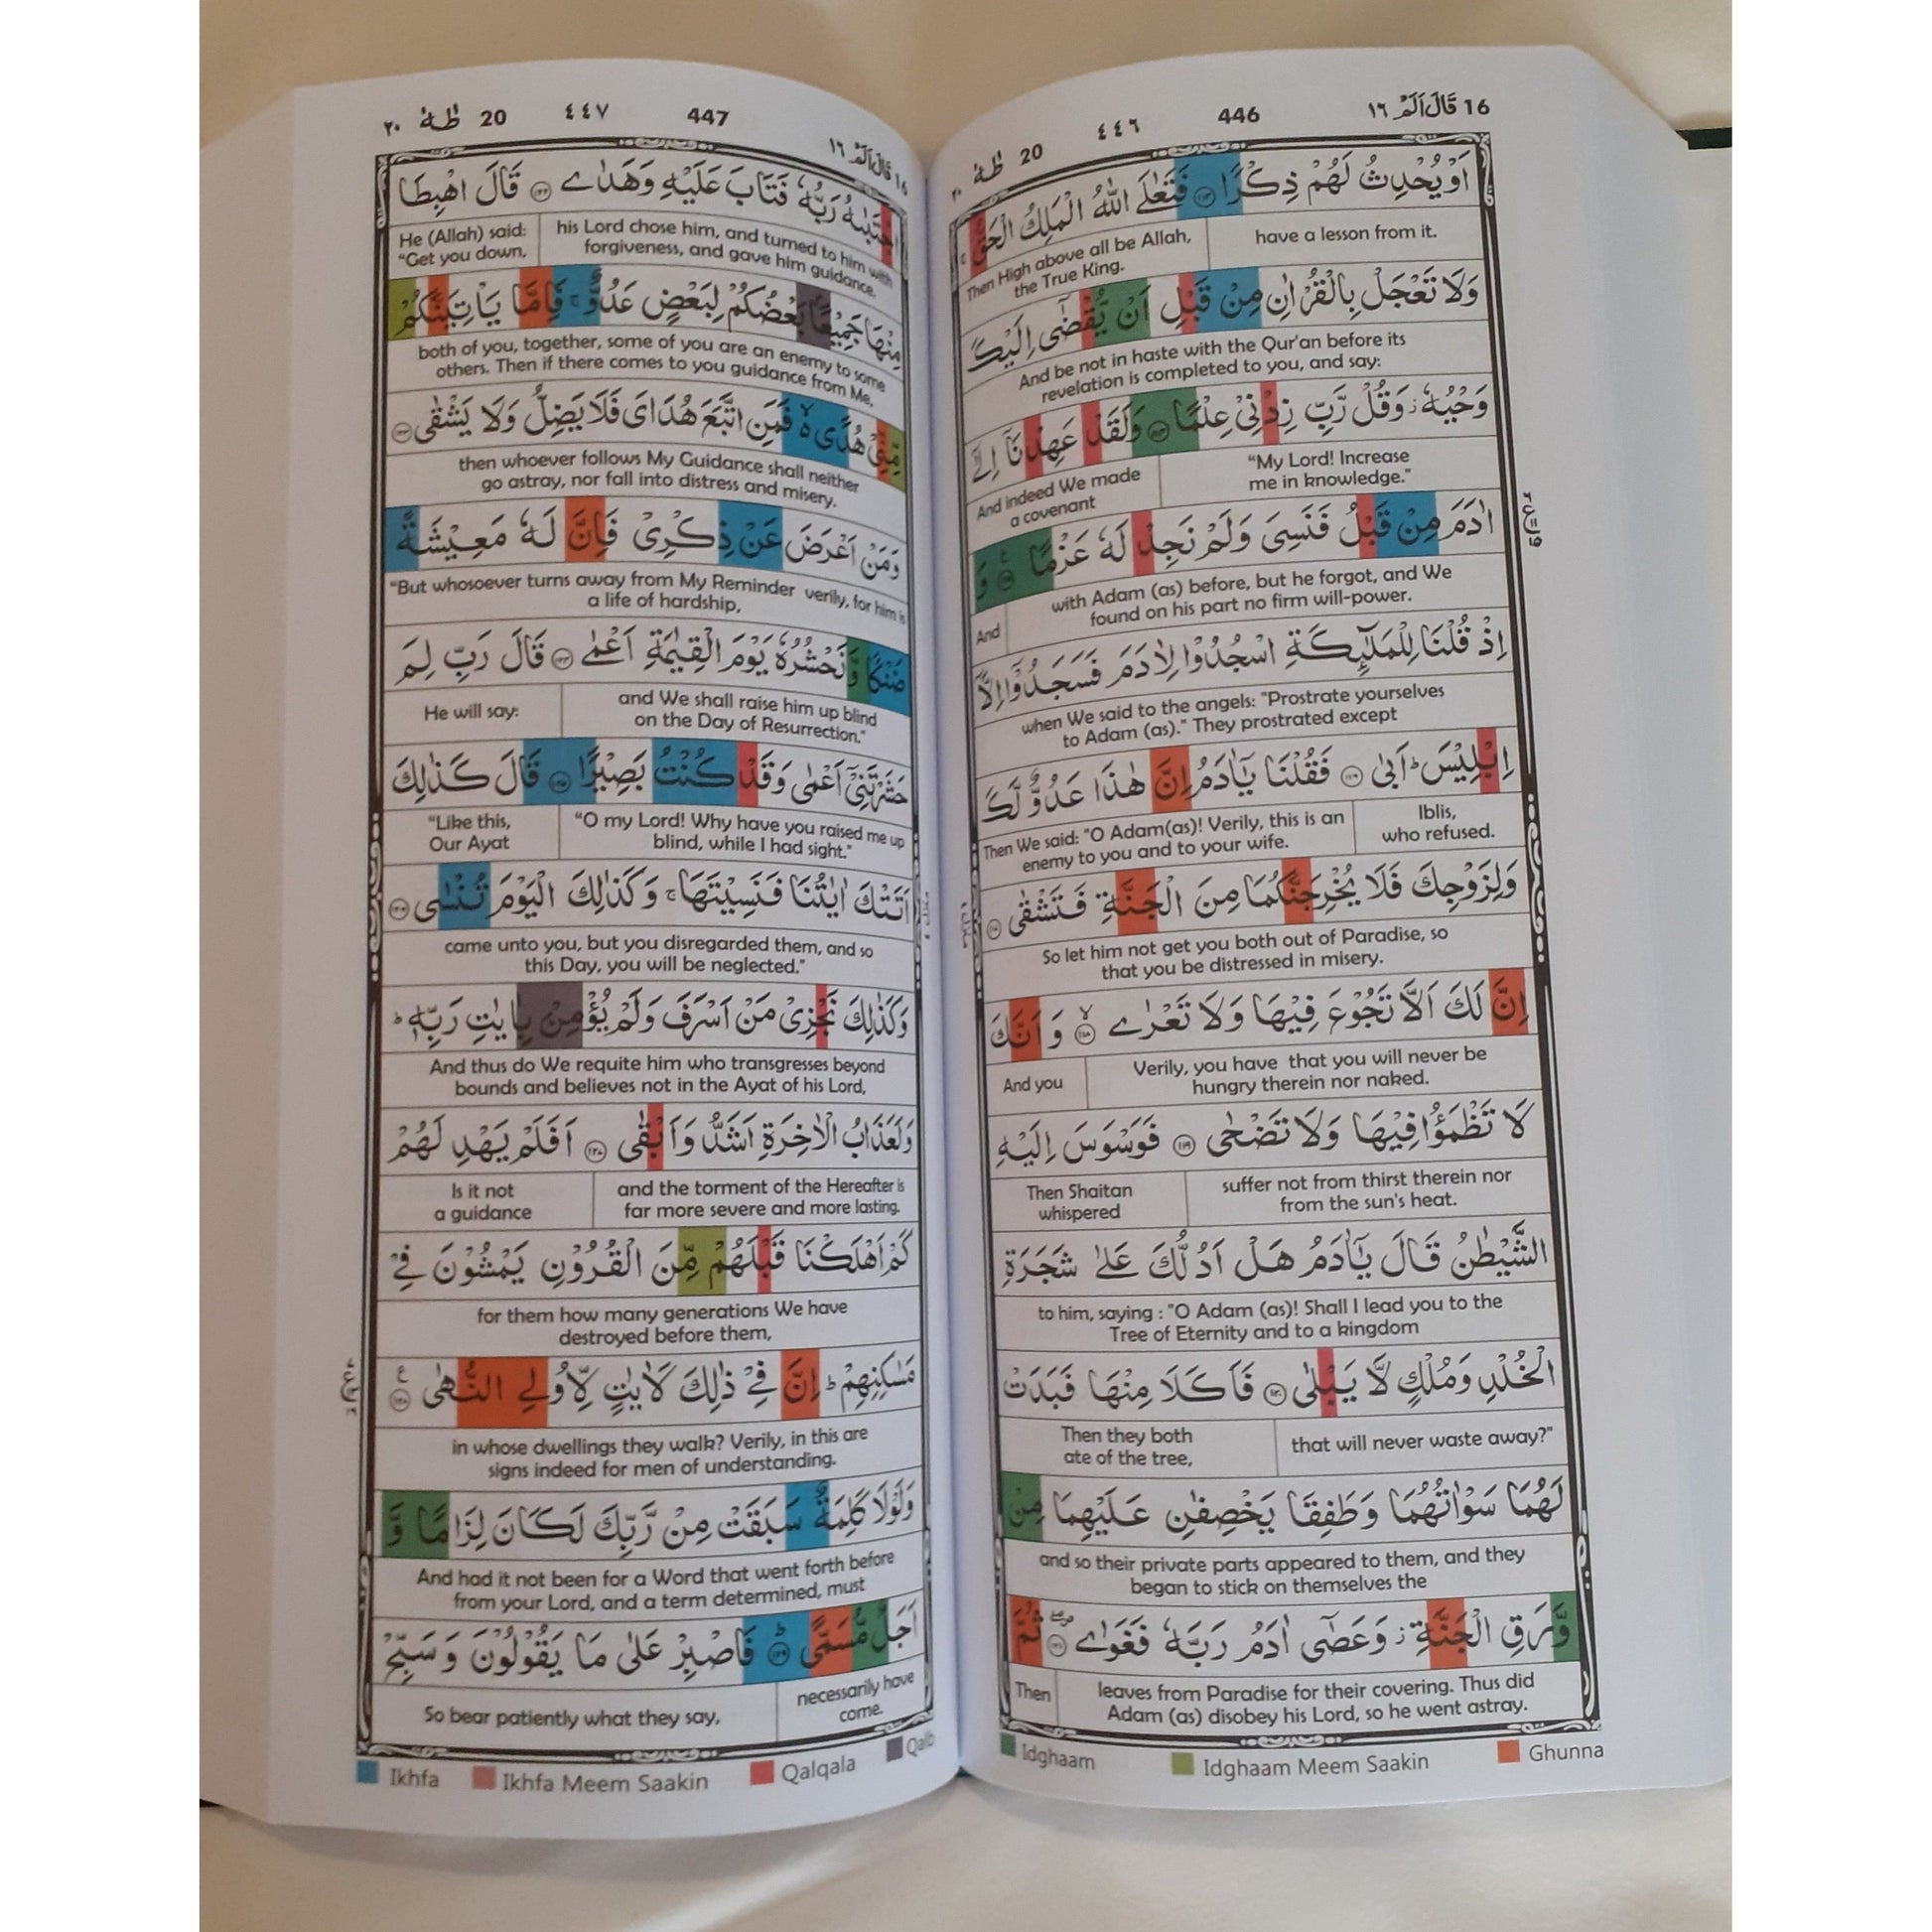 16 قَالَ اَلَمْ ١٦
446
٤٤٦
20 طٰهٰ ٢٠
اَوْ يُحْدِثُ لَهُمْ ذِكْرًا ١١٣ فَتَعٰلَى اللّٰهُ الْمَلِكُ الْحَقُّ ۚ
have a lesson from it.
Then High above all be Allah,
the True King.
وَلَا تَعْجَلْ بِالْقُرْاٰنِ مِنْ قَبْلِ اَنْ يُّقْضٰٓى اِلَيْكَ
And be not in haste with the Qur'an before its
revelation is completed to you, and say:
وَحْيُهٗ ز وَقُلْ رَّبِّ زِدْنِيْ عِلْمًا ١١٤ وَلَقَدْ عَهِدْنَآ اِلٰٓى
"My Lord! Increase
me in knowledge."
And indeed We made
a covenant
اٰدَمَ مِنْ قَبْلُ فَنَسِيَ وَلَمْ نَجِدْ لَهٗ عَزْمًا ١١٥ وَ
with Adam (as) before, but he forgot, and We
found on his part no firm will-power.
And
اِذْ قُلْنَا لِلْمَلٰٓئِكَةِ اسْجُدُوْا لِاٰدَمَ فَسَجَدُوْٓا اِلَّآ
when We said to the angels: "Prostrate yourselves
to Adam (as)." They prostrated except
اِبْلِيْسَ ط اَبٰى ١١٦ فَقُلْنَا يٰٓاٰدَمُ اِنَّ هٰذَا عَدُوٌّ لَّكَ
Iblis,
who refused.
Then We said: "O Adam(as)! Verily, this is an
enemy to you and to your wife.
وَلِزَوْجِكَ فَلَا يُخْرِجَنَّكُمَا مِنَ الْجَنَّةِ فَتَشْقٰى ١١٧
So let him not get you both out of Paradise, so
that you be distressed in misery.
اِنَّ لَكَ اَلَّا تَجُوْعَ فِيْهَا وَلَا تَعْرٰى ١١٨ وَ اَنَّكَ
Verily, you have that you will never be
hungry therein nor naked.
And you
لَا تَظْمَؤُا فِيْهَا وَلَا تَضْحٰى ١١٩ فَوَسْوَسَ اِلَيْهِ
suffer not from thirst therein nor
from the sun's heat.
Then Shaitan
whispered
الشَّيْطٰنُ قَالَ يٰٓاٰدَمُ هَلْ اَدُلُّكَ عَلٰى شَجَرَةِ
to him, saying : "O Adam (as)! Shall I lead you to the
Tree of Eternity and to a kingdom
الْخُلْدِ وَمُلْكٍ لَّا يَبْلٰى ١٢٠ فَاَكَلَا مِنْهَا فَبَدَتْ
that will never waste away?"
Then they both
ate of the tree,
لَهُمَا سَوْاٰتُهُمَا وَطَفِقَا يَخْصِفٰنِ عَلَيْهِمَا مِنْ
and so their private parts appeared to them, and they
began to stick on themselves the
وَّرَقِ الْجَنَّةِ ز وَعَصٰٓى اٰدَمُ رَبَّهٗ فَغَوٰى ١٢١ ثُمَّ
leaves from Paradise for their covering. Thus did
Adam (as) disobey his Lord, so he went astray.
Then
Idghaam
Idghaam Meem Saakin
Ghunna
16 قَالَ اَلَمْ ١٦
447
٤٤٧
20 طٰهٰ ٢٠
اجْتَبٰهُ رَبُّهٗ فَتَابَ عَلَيْهِ وَهَدٰى ١٢٢ قَالَ اهْبِطَا
his Lord chose him, and turned to him with
forgiveness, and gave him guidance.
He (Allah) said:
"Get you down,
مِنْهَا جَمِيْعًا بَعْضُكُمْ لِبَعْضٍ عَدُوٌّ ۚ فَاِمَّا يَاْتِيَنَّكُمْ
both of you, together, some of you are an enemy to some
others. Then if there comes to you guidance from Me,
مِّنِّيْ هُدًى ۙ فَمَنِ اتَّبَعَ هُدَايَ فَلَا يَضِلُّ وَلَا يَشْقٰى ١٢٣
then whoever follows My Guidance shall neither
go astray, nor fall into distress and misery.
وَمَنْ اَعْرَضَ عَنْ ذِكْرِيْ فَاِنَّ لَهٗ مَعِيْشَةً
"But whosoever turns away from My Reminder verily, for him is
a life of hardship,
ضَنْكًا وَّنَحْشُرُهٗ يَوْمَ الْقِيٰمَةِ اَعْمٰى ١٢٤ قَالَ رَبِّ لِمَ
and We shall raise him up blind
on the Day of Resurrection."
He will say:
حَشَرْتَنِيْٓ اَعْمٰى وَقَدْ كُنْتُ بَصِيْرًا ١٢٥ قَالَ كَذٰلِكَ
"O my Lord! Why have you raised me up
blind, while I had sight."
"Like this,
Our Ayat
اَتَتْكَ اٰيٰتُنَا فَنَسِيْتَهَا ۚ وَكَذٰلِكَ الْيَوْمَ تُنْسٰى ١٢٦
came unto you, but you disregarded them, and so
this Day, you will be neglected."
وَكَذٰلِكَ نَجْزِيْ مَنْ اَسْرَفَ وَلَمْ يُؤْمِنْ بِاٰيٰتِ رَبِّهٖ ط
And thus do We requite him who transgresses beyond
bounds and believes not in the Ayat of his Lord,
وَلَعَذَابُ الْاٰخِرَةِ اَشَدُّ وَاَبْقٰى ١٢٧ اَفَلَمْ يَهْدِ لَهُمْ
and the torment of the Hereafter is
far more severe and more lasting.
Is it not
a guidance
كَمْ اَهْلَكْنَا قَبْلَهُمْ مِّنَ الْقُرُوْنِ يَمْشُوْنَ فِيْ
for them how many generations We have
destroyed before them,
مَسٰكِنِهِمْ ط اِنَّ فِيْ ذٰلِكَ لَاٰيٰتٍ لِّاُولِي النُّهٰى ١٢٨
in whose dwellings they walk? Verily, in this are
signs indeed for men of understanding.
وَلَوْلَا كَلِمَةٌ سَبَقَتْ مِنْ رَّبِّكَ لَكَانَ لِزَامًا وَّ
And had it not been for a Word that went forth before
from your Lord, and a term determined, must
اَجَلٌ مُّسَمًّى ١٢٩ فَاصْبِرْ عَلٰى مَا يَقُوْلُوْنَ وَسَبِّحْ
necessarily have
come.
So bear patiently what they say,
Ikhfa
Ikhfa Meem Saakin
Qalqala
Qalb